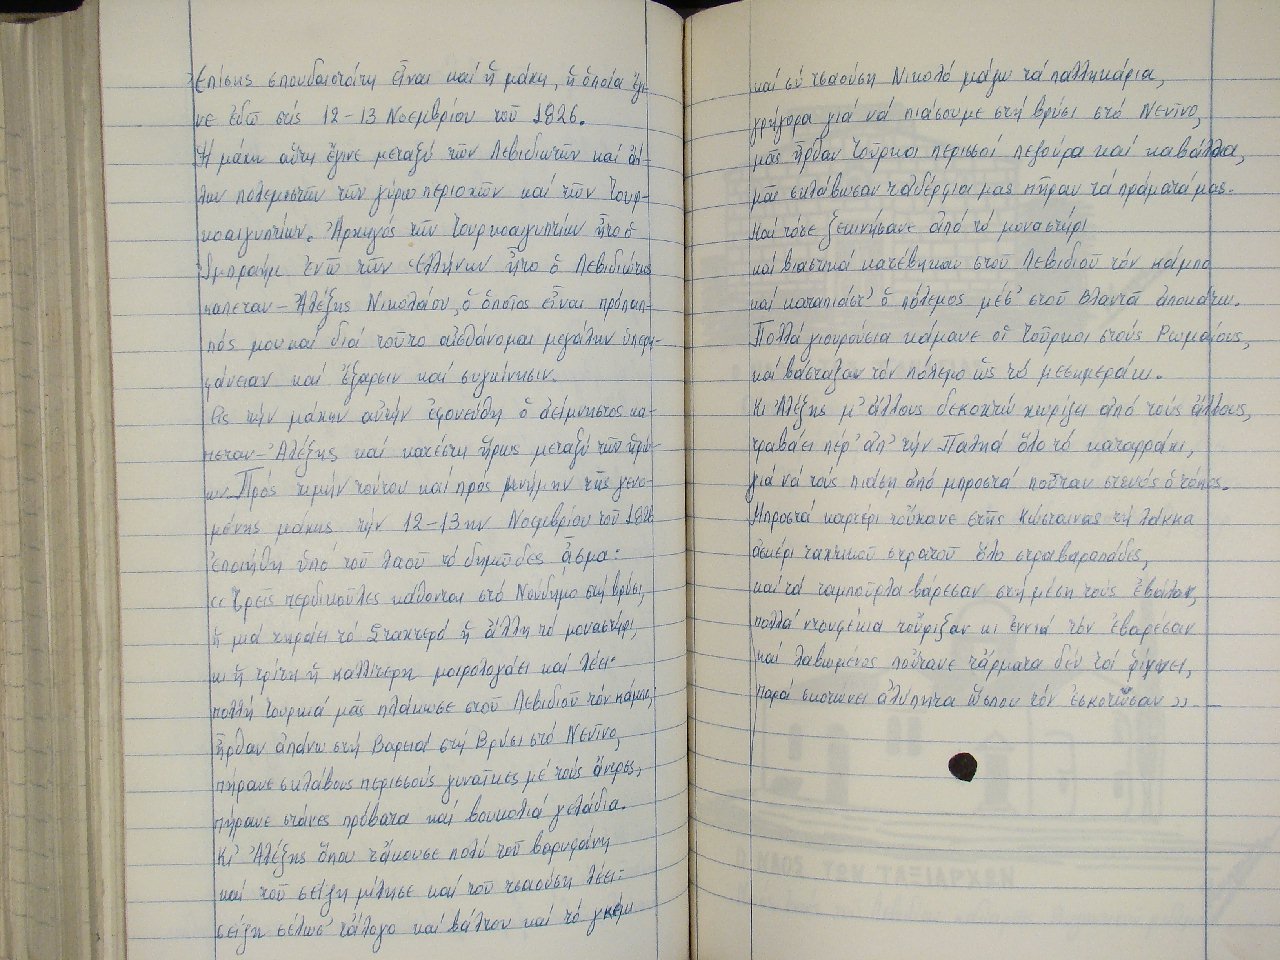 Ἐπίσης σπουδαιοτάτη εἶναι καί ἡ μάχη, ἡ ὁποία ἔγι-
νε ἐδῶ στίς 12-13 Νοεμβρίου τοῦ 1826.
Ἡ μάχη αὕτη ἔγινε μεταξύ τῶν Λεβιδιωτῶν καί ἄλ-
λων πολεμιστῶν τῶν γύρω περιοχῶν καί τῶν Τουρ-
κοαιγυπτίων. Ἀρχηγός τῶν Τουρκοαιγυπτίων ἦτο ὁ
Ἰμπραήμ ἐνῶ τῶν Ἑλλήνων ἦτο ὁ Λεβιδιώτης
καπεταν-Ἀλέξης Νικολάου, ὁ ὁποῖος εἶναι πρόπαπ-
πός μου καί διά τοῦτο αἰσθάνομαι μεγάλην ὑπερη-
φάνειαν καί ἔξαρσιν καί συγκίνησιν.
Εἰς τήν μάχην αὐτήν ἐφονεύθη ὁ ἀείμνηστος κα-
πεταν-Ἀλέξης καί κατέστη ἥρως μεταξύ τῶν ἡρώ-
ων. Πρός τιμήν τούτου καί πρός μνήμην τῆς γενο-
μένης μάχης τήν 12-13ην Νοεμβρίου τοῦ 1826
ἐποιήθη ὑπό τοῦ λαοῦ τό δημῶδες ᾆσμα:
«Τρεῖς περδικοῦλες κάθονται στό Νούδημο στή βρύσι,
ἡ μιά τηράει τό Στακτερό ἡ ἄλλη τό μοναστήρι,
κι ἡ τρίτη ἡ καλλίτερη μοιρολογάει καί λέει:
πολλή Τουρκιά μᾶς πλάκωσε στοῦ Λεβιδιοῦ τόν κάμπο,
ἦρθαν ἀπάνω στή Βαρειά στή Βρύσι στό Νενῖνο,
πήρανε σκλάβους περισσούς γυναῖκες μέ τούς ἄντρες,
πήρανε στάνες πρόβατα καί βουκολιά γελάδια.
Κι' Ἀλέξης ὅπου τἄκουσε πολύ τοῦ βαρυφάνη
καί τοῦ σεΐζη μίλησε καί τοῦ τσαούση λέει:
σεΐζη σέλωσ' τἄλογο καί βάλτου καί τό γκέμι
καί σύ τσαούση Νικολό μάζω τά παλληκάρια,
γρήγορα γιά νά πιάσουμε στή βρύσι στό Νενῖνο,
μᾶς ἦρθαν Τοῦρκοι περισσοί πεζούρα καί καβάλλα,
μᾶς σκλάβωσαν τἀδέρφια μας πῆραν τά πράματά μας.
Καί τότε ξεκινήσανε ἀπό τό μοναστήρι
καί βιαστικά κατέβηκαν στοῦ Λεβιδιοῦ τόν κάμπο
καί καταπιάστ' ὁ πόλεμος μέσ' στοῦ Βλαντᾶ ἀποκάτω.
Πολλά γιουρούσια κάμανε οἱ Τοῦρκοι στούς Ρωμαίους,
καί βάσταξαν τόν πόλεμο ὥς τό μεσημεράκι.
Κι Ἀλέξης μ' ἄλλους δεκοχτώ χωρίζει ἀπό τούς ἄλλους,
τραβάει πέρ' ἀπ' τήν Παληά ὅλο τό καταρράχι,
γιά νά τούς πιάση ἀπό μπροστά ποὖταν στενός ὁ τόπος.
Μπροστά καρτέρι τοὔκανε στῆς Κώσταινας τή λάκκα
ἀσκέρι τακτικοῦ στρατοῦ ὅλο στραβαραπάδες,
καί τά ταμποῦρλα βάρεσαν στή μέση τούς ἐβάλαν,
πολλά ντουφέκια τοὔριξαν κι ἐννιά τόν ἐβαρέσαν
καί λαβωμένος ποὔτανε τἄρματα δέν τά ρίχνει,
παρά σκοτώνει ἀλύπητα ὥσπου τόν ἐσκοτῶσαν».